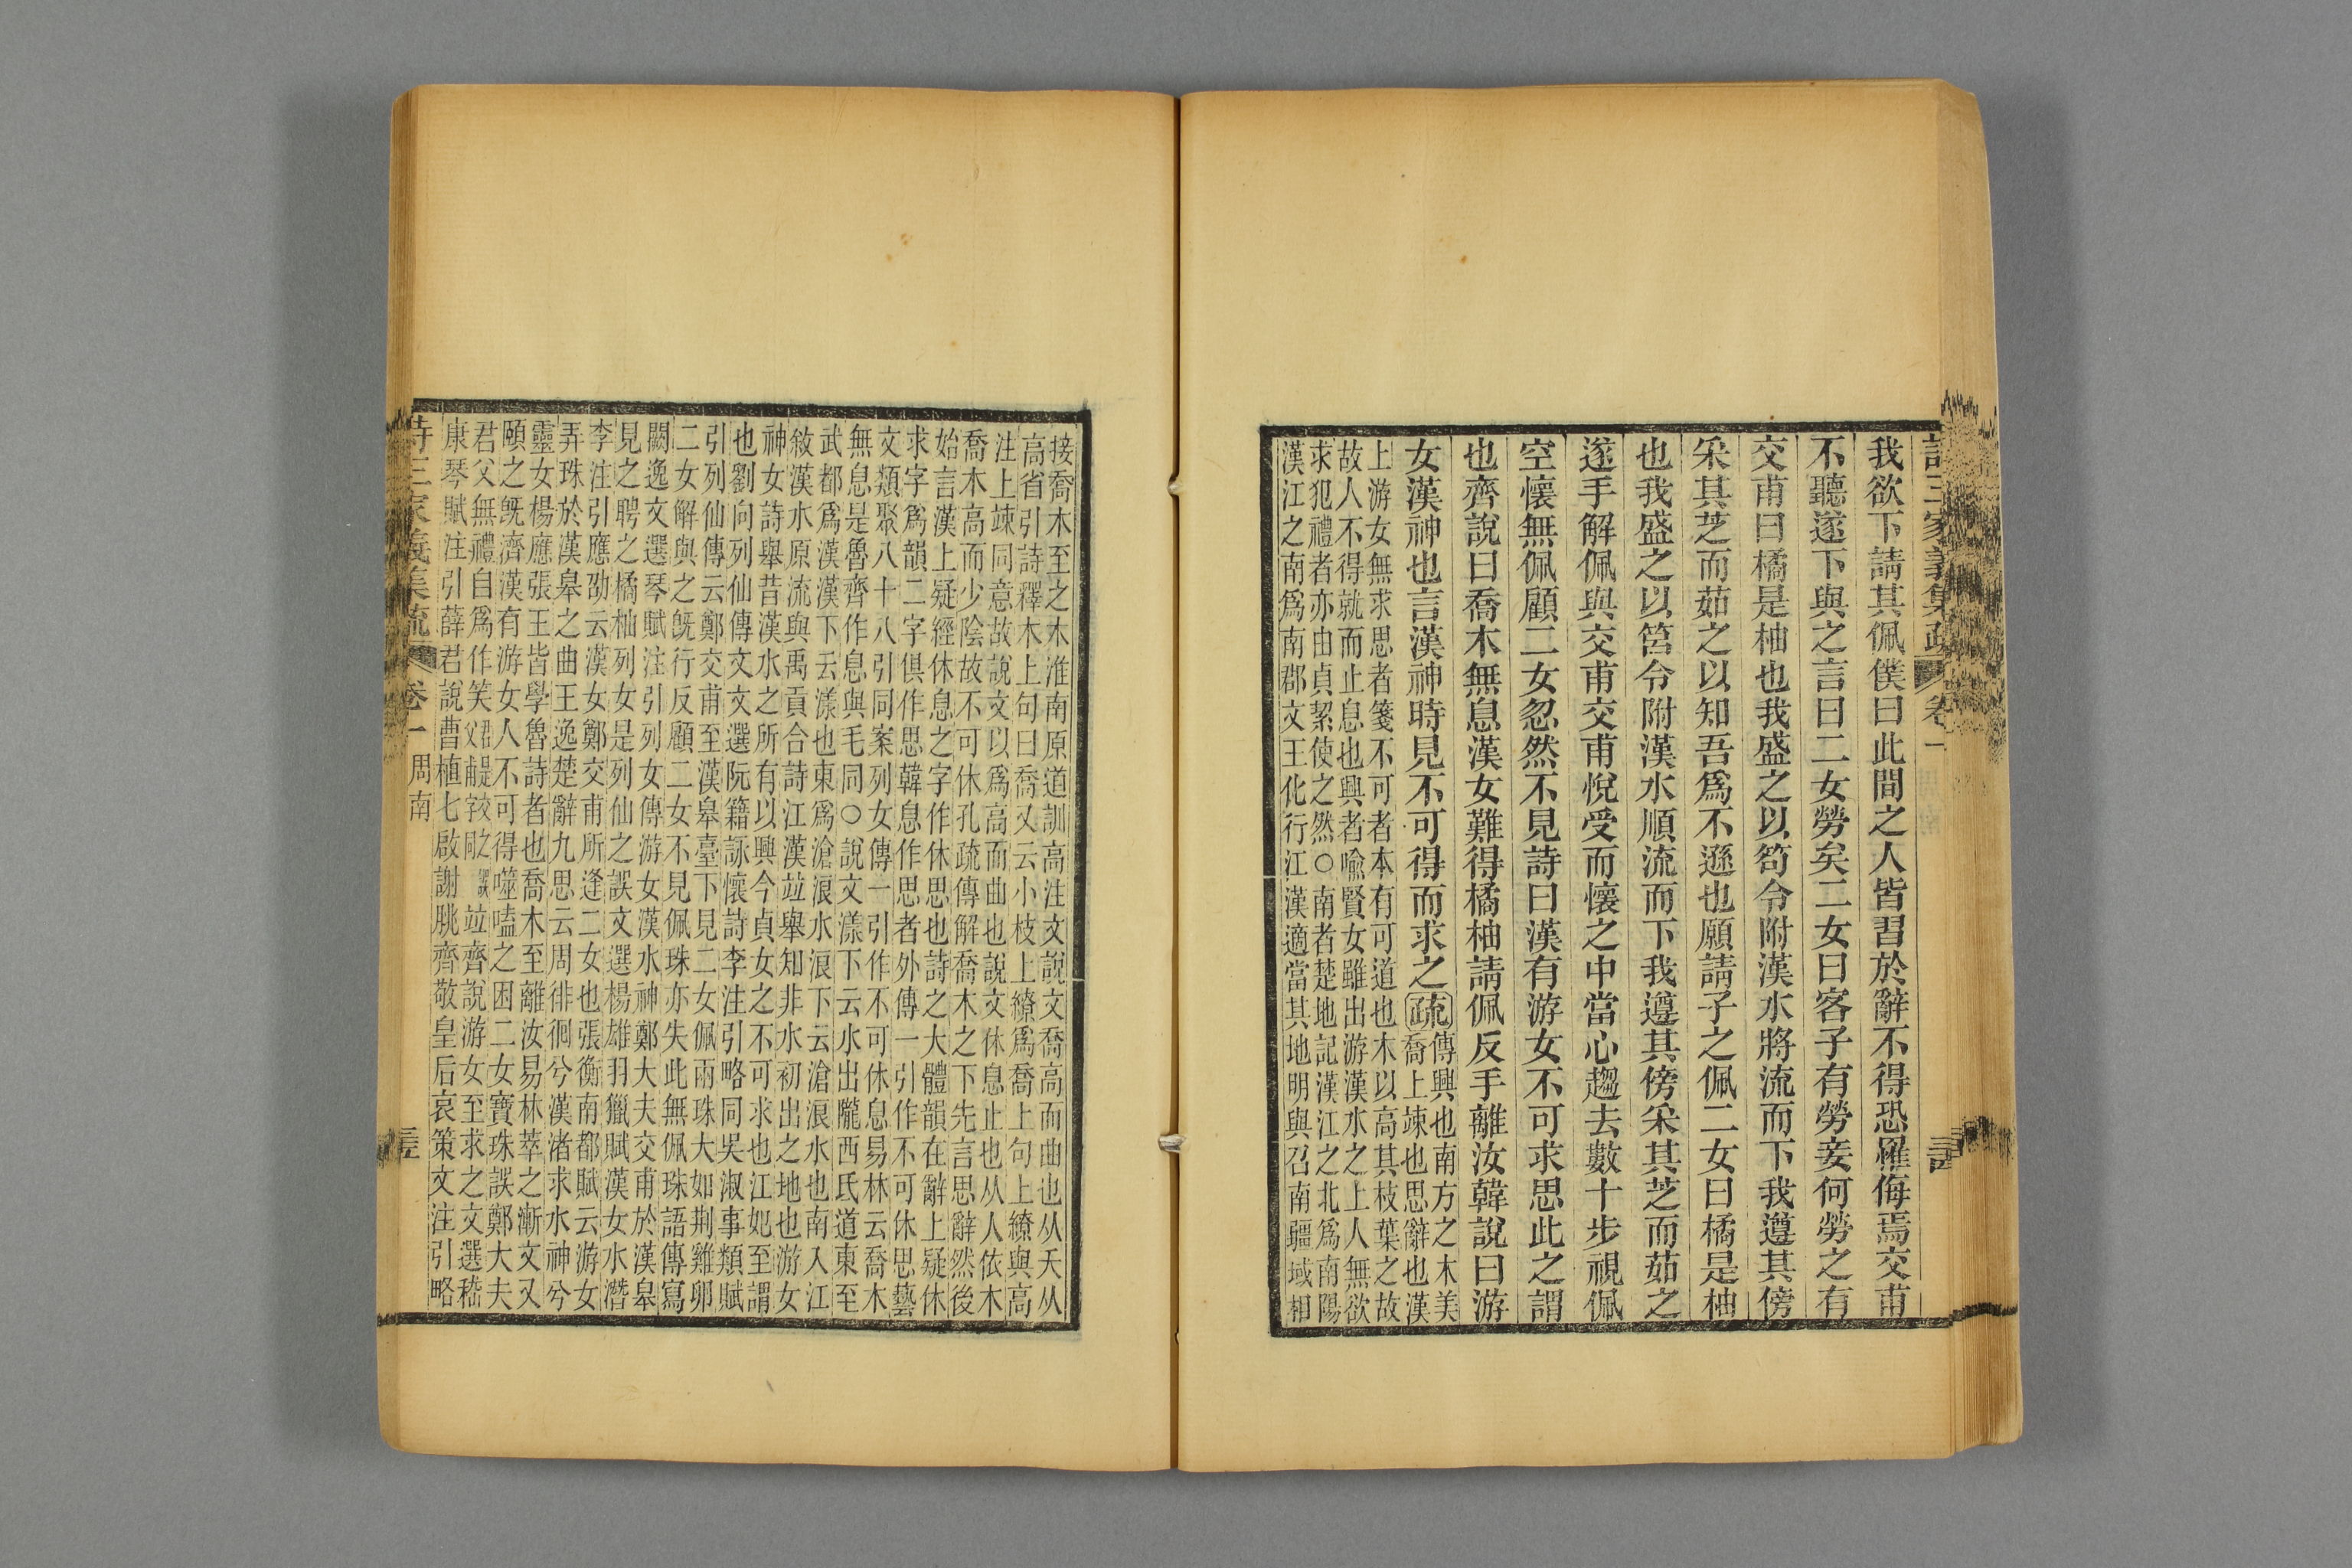 詩三家義集疏 卷一
我欲下請其佩僕曰此間之人皆習於辭不得恐罹侮焉交甫
不聽遂下與之言曰二女勞矣二女曰客子有勞妾何勞之有
交甫曰橘是柚也我盛之以笱令附漢水將流而下我遵其傍
采其芝而茹之以知吾爲不遜也願請子之佩二女曰橘是柚
也我盛之以筥令附漢水順流而下我遵其傍采其芝而茹之
遂手解佩與交甫交甫悅受而懷之中當心趨去數十步視佩
空懷無佩顧二女忽然不見詩曰漢有游女不可求思此之謂
也齊說曰喬木無息漢女難得橘柚請佩反手離汝韓說曰游
女漢神也言漢神時見不可得而求之疏
傳興也南方之木美
喬上竦也思辭也漢
上游女無求思者箋不可者本有可道也木以高其枝葉之故
故人不得就而止息也興者喻賢女雖出游漢水之上人無欲
求犯禮者亦由貞絜使之然○南者楚地記漢江之北爲南陽
漢江之南爲南郡文王化行江漢適當其地明與召南疆域相
接喬木至之木淮南原道訓高注文說文喬高而曲也从夭从
高省引詩釋木上句曰喬又云小枝上繚爲喬上句上繚與高
注上竦同意故說文以爲高而曲也說文休息止也从人依木
喬木高而少陰故不可休孔疏傳解喬木之下先言思辭然後
始言漢上疑經休息之字作休思也詩之大體韻在辭上疑休
求字爲韻二字俱作思韓息作思者外傳一引作不可休思藝
文類聚八十八引同案列女傳一引作不可休息易林云喬木
無息是魯齊作息與毛同○說文漾下云水出隴西氐道東至
武都爲漢漢下云漾也東爲滄浪水浪下云滄浪水也南入江
敘漢水原流與禹貢合詩江漢竝舉知非水初出之地也游女
神女詩舉昔漢水之所有以興今貞女之不可求也江妃至謂
也劉向列仙傳文文選阮籍詠懷詩李注引略同吳淑事類賦
引列仙傳云鄭交甫至漢皋臺下見二女佩兩珠大如荆雞卵
二女解與之旣行反顧二女不見佩珠亦失此無佩珠語傳寫
闕逸文選琴賦注引列女傳游女漢水神鄭大夫交甫於漢皋
見之聘之橘柚列女是列仙之誤文選楊雄羽獵賦漢女水潛
李注引應劭云漢女鄭交甫所逢二女也張衡南都賦云游女
弄珠於漢皋之曲王逸楚辭九思云周徘徊兮漢渚求水神兮
靈女楊應張王皆學魯詩者也喬木至離汝易林萃之漸文又
頤之旣濟漢有游女人不可得噬嗑之困二女寶珠誤鄭大夫
君父無禮自爲作笑竝齊說游女至求之文選嵇
康琴賦注引薛君說曹植七啟謝朓齊敬皇后哀策文注引略
詩三家義集疏 卷一 周南